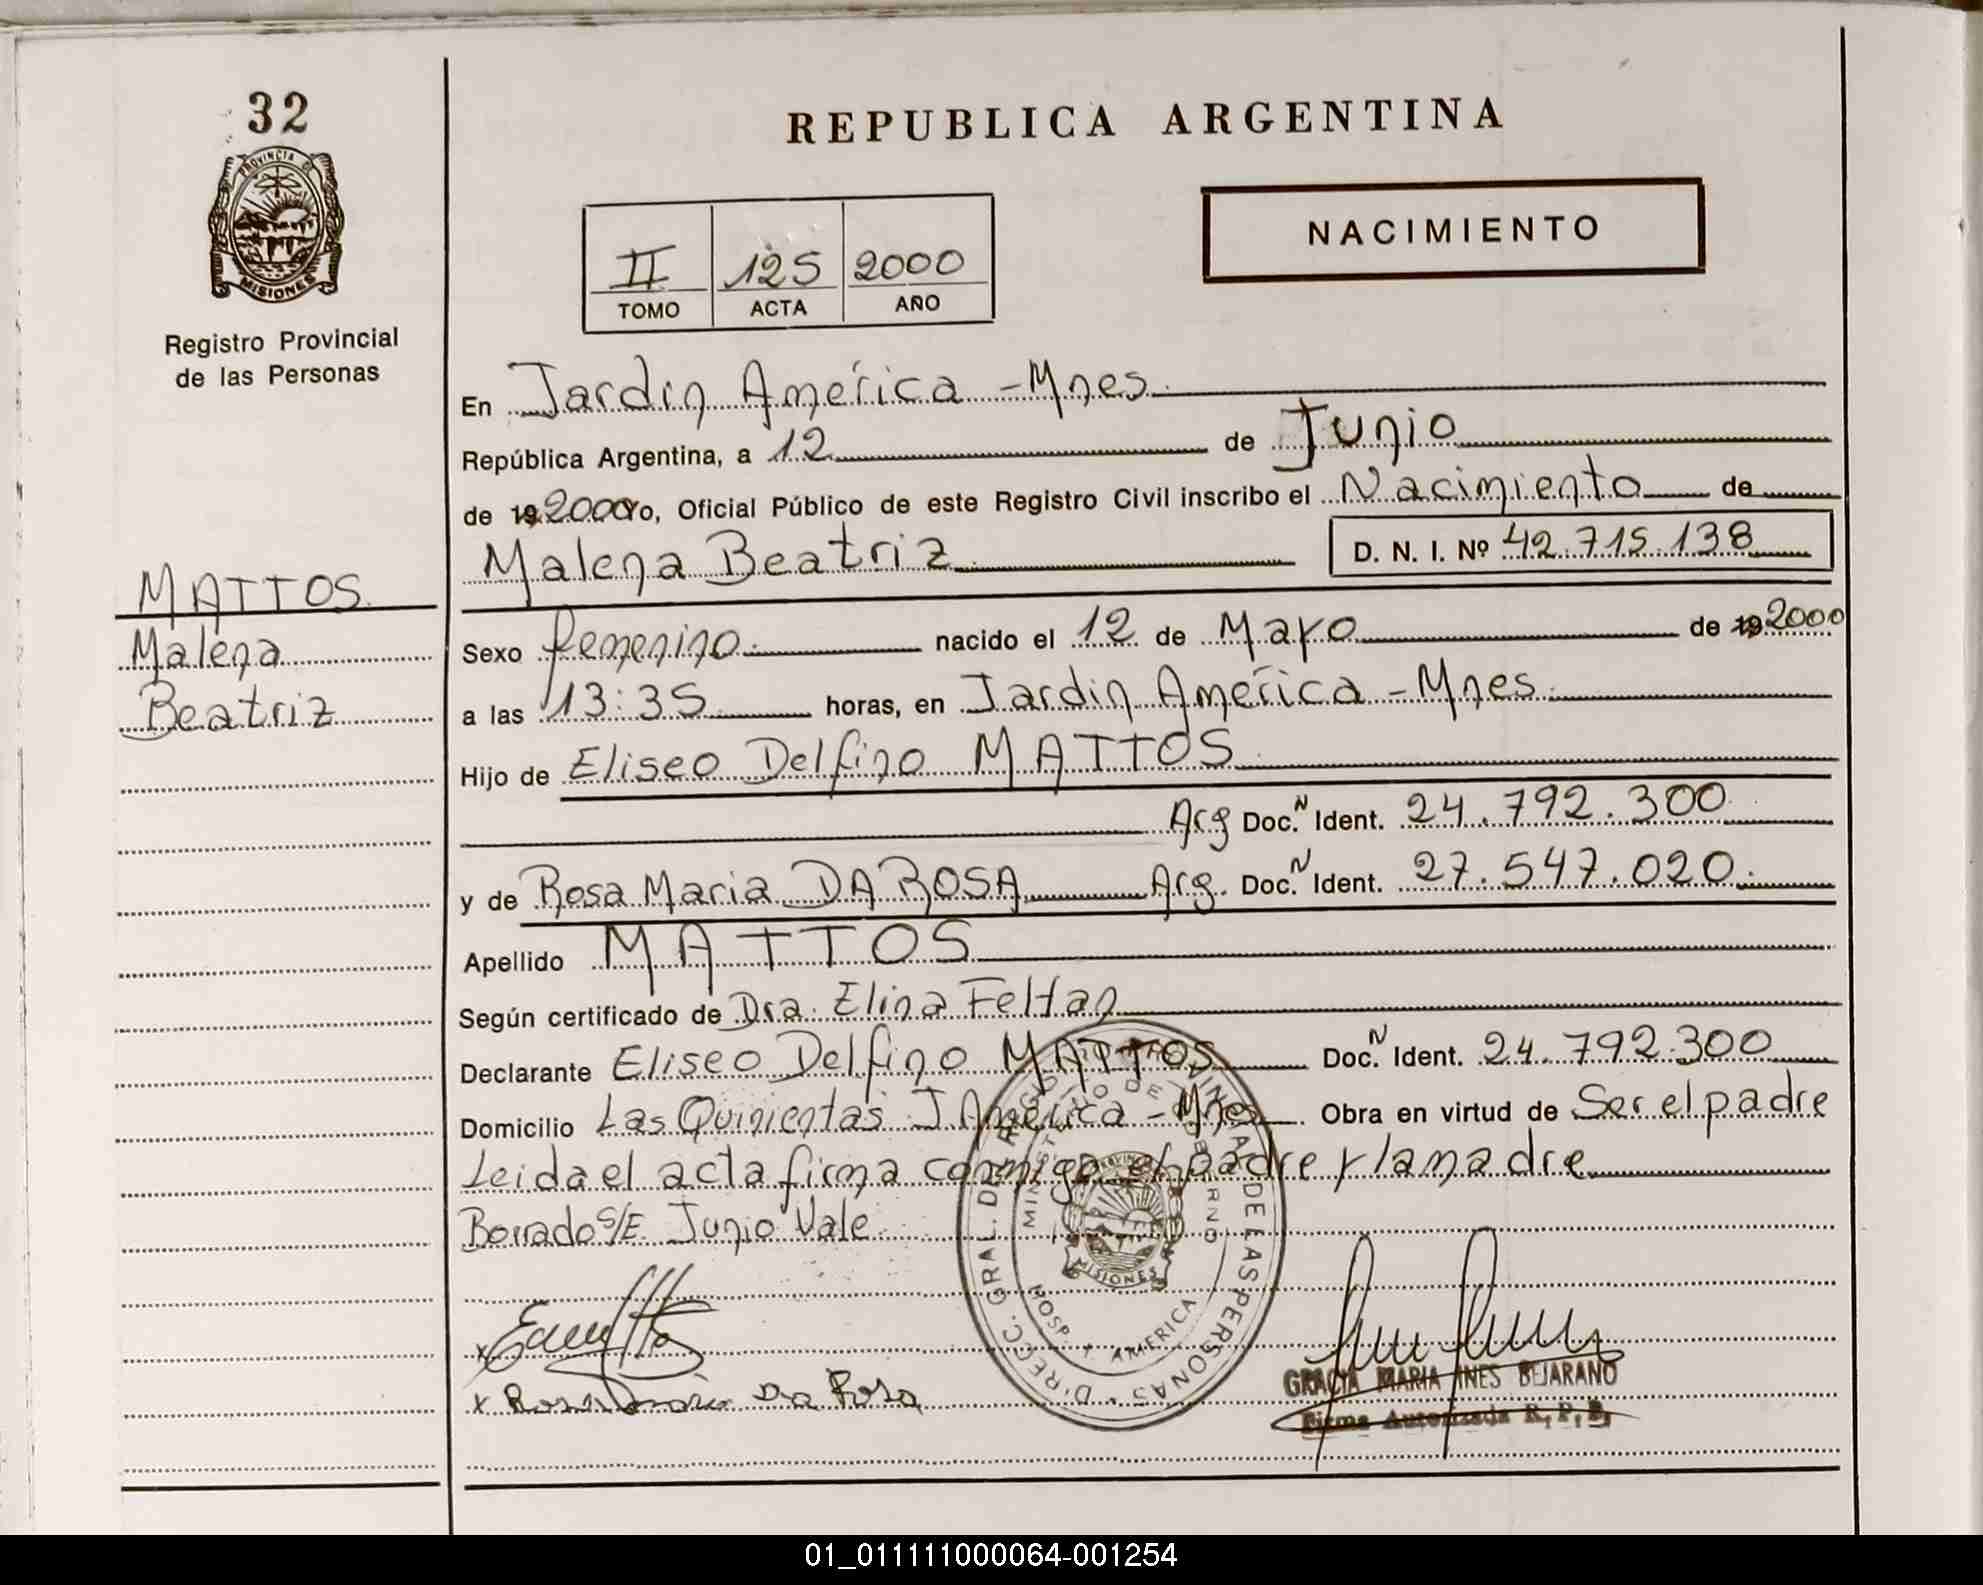 32
REPUBLICA ARGENTINA
PROVINCIA DE
MISIONES
Registro Provincial
de las Personas
II 125 2000
TOMO ACTA AÑO
NACIMIENTO
En Jardin América - Mnes.
República Argentina, a 12 de Junio
de 19 2000 Yo, Oficial Público de este Registro Civil inscribo el Nacimiento de
Malena Beatriz D. N. I. Nº 42.715.138
MATTOS.
Malena
Beatriz
Sexo femenino. nacido el 12 de Mayo de 19 2000
a las 13:35 horas, en Jardin América - Mnes.
Hijo de Eliseo Delfino MATTOS
Arg Doc. N Ident. 24.792.300
y de Rosa Maria DA ROSA Arg. Doc. N Ident. 27.547.020.
Apellido MATTOS
Según certificado de Dra. Elina Feltan
Declarante Eliseo Delfino MATTOS Doc. N Ident. 24.792.300
Domicilio Las Quinientas J. América - Mnes. Obra en virtud de Ser el padre
Leida el acta firma conmigo el padre y la madre
Borrado S/E. Junio Vale
DIRECC. GRAL. DE REGISTRO PROVINCIAL DE LAS PERSONAS
MINISTERIO DE GOBIERNO
PROVINCIA
MISIONES
HOSP. J. AMERICA
x
x Rosa Maria Da Rosa
GRACIA MARIA INES BEJARANO
Firma Autorizada R, P, P,
01_011111000064-001254